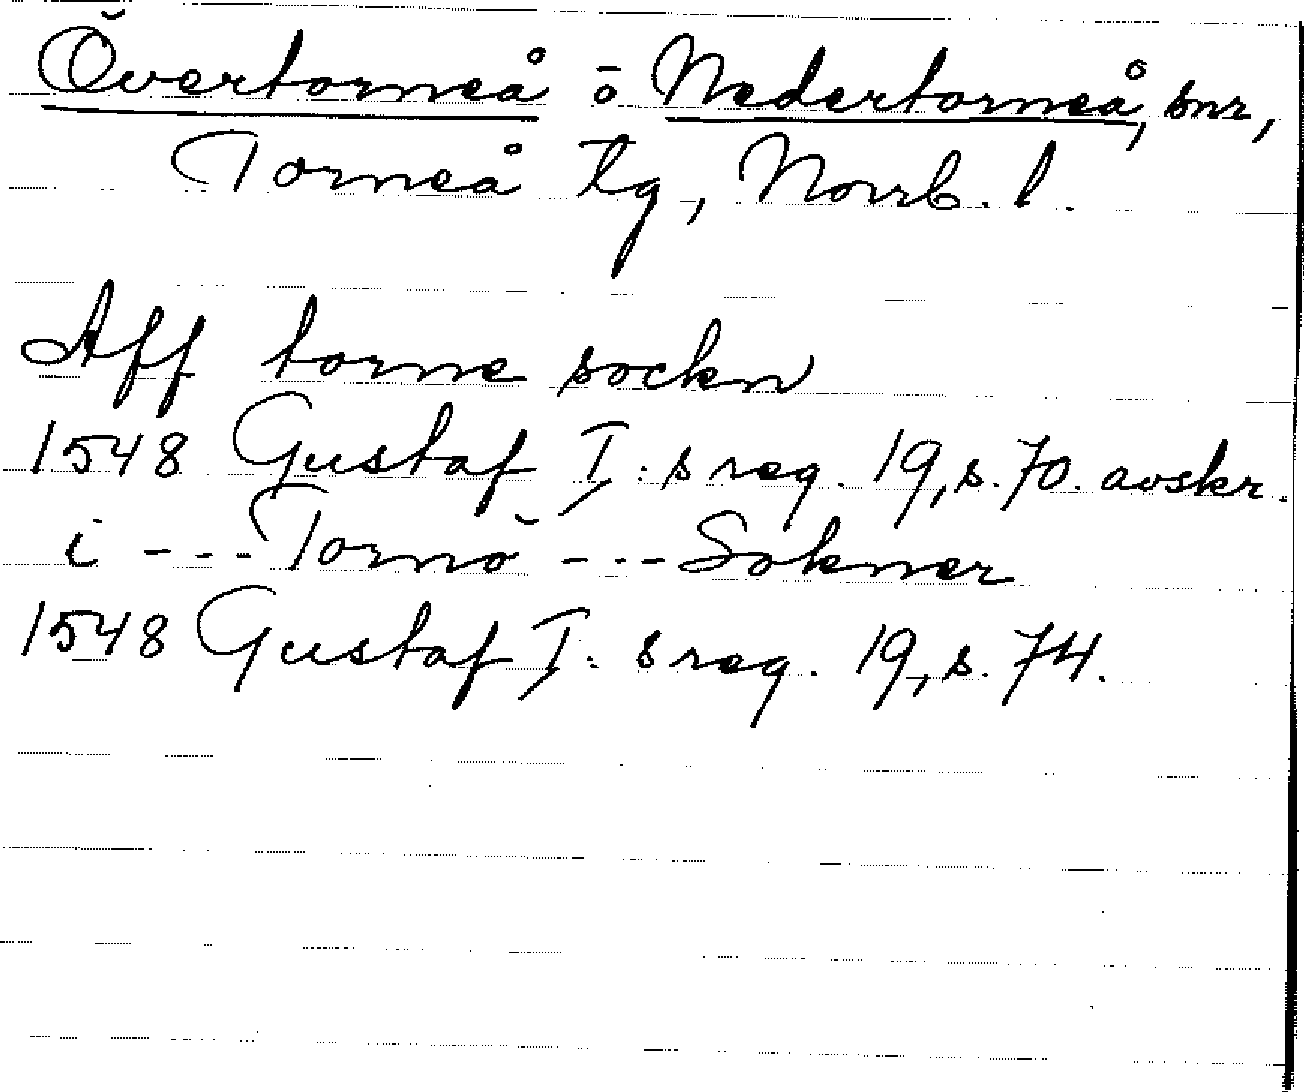 Övertorneå o Nedertorneå, snr,
Torneå tg, Norrb. l.
Aff torne sockn
1548 Gustaf I:s reg. 19, s. 70. avskr.
i --- Tornö --- Sokner
1548 Gustaf I:s reg. 19, s. 74.